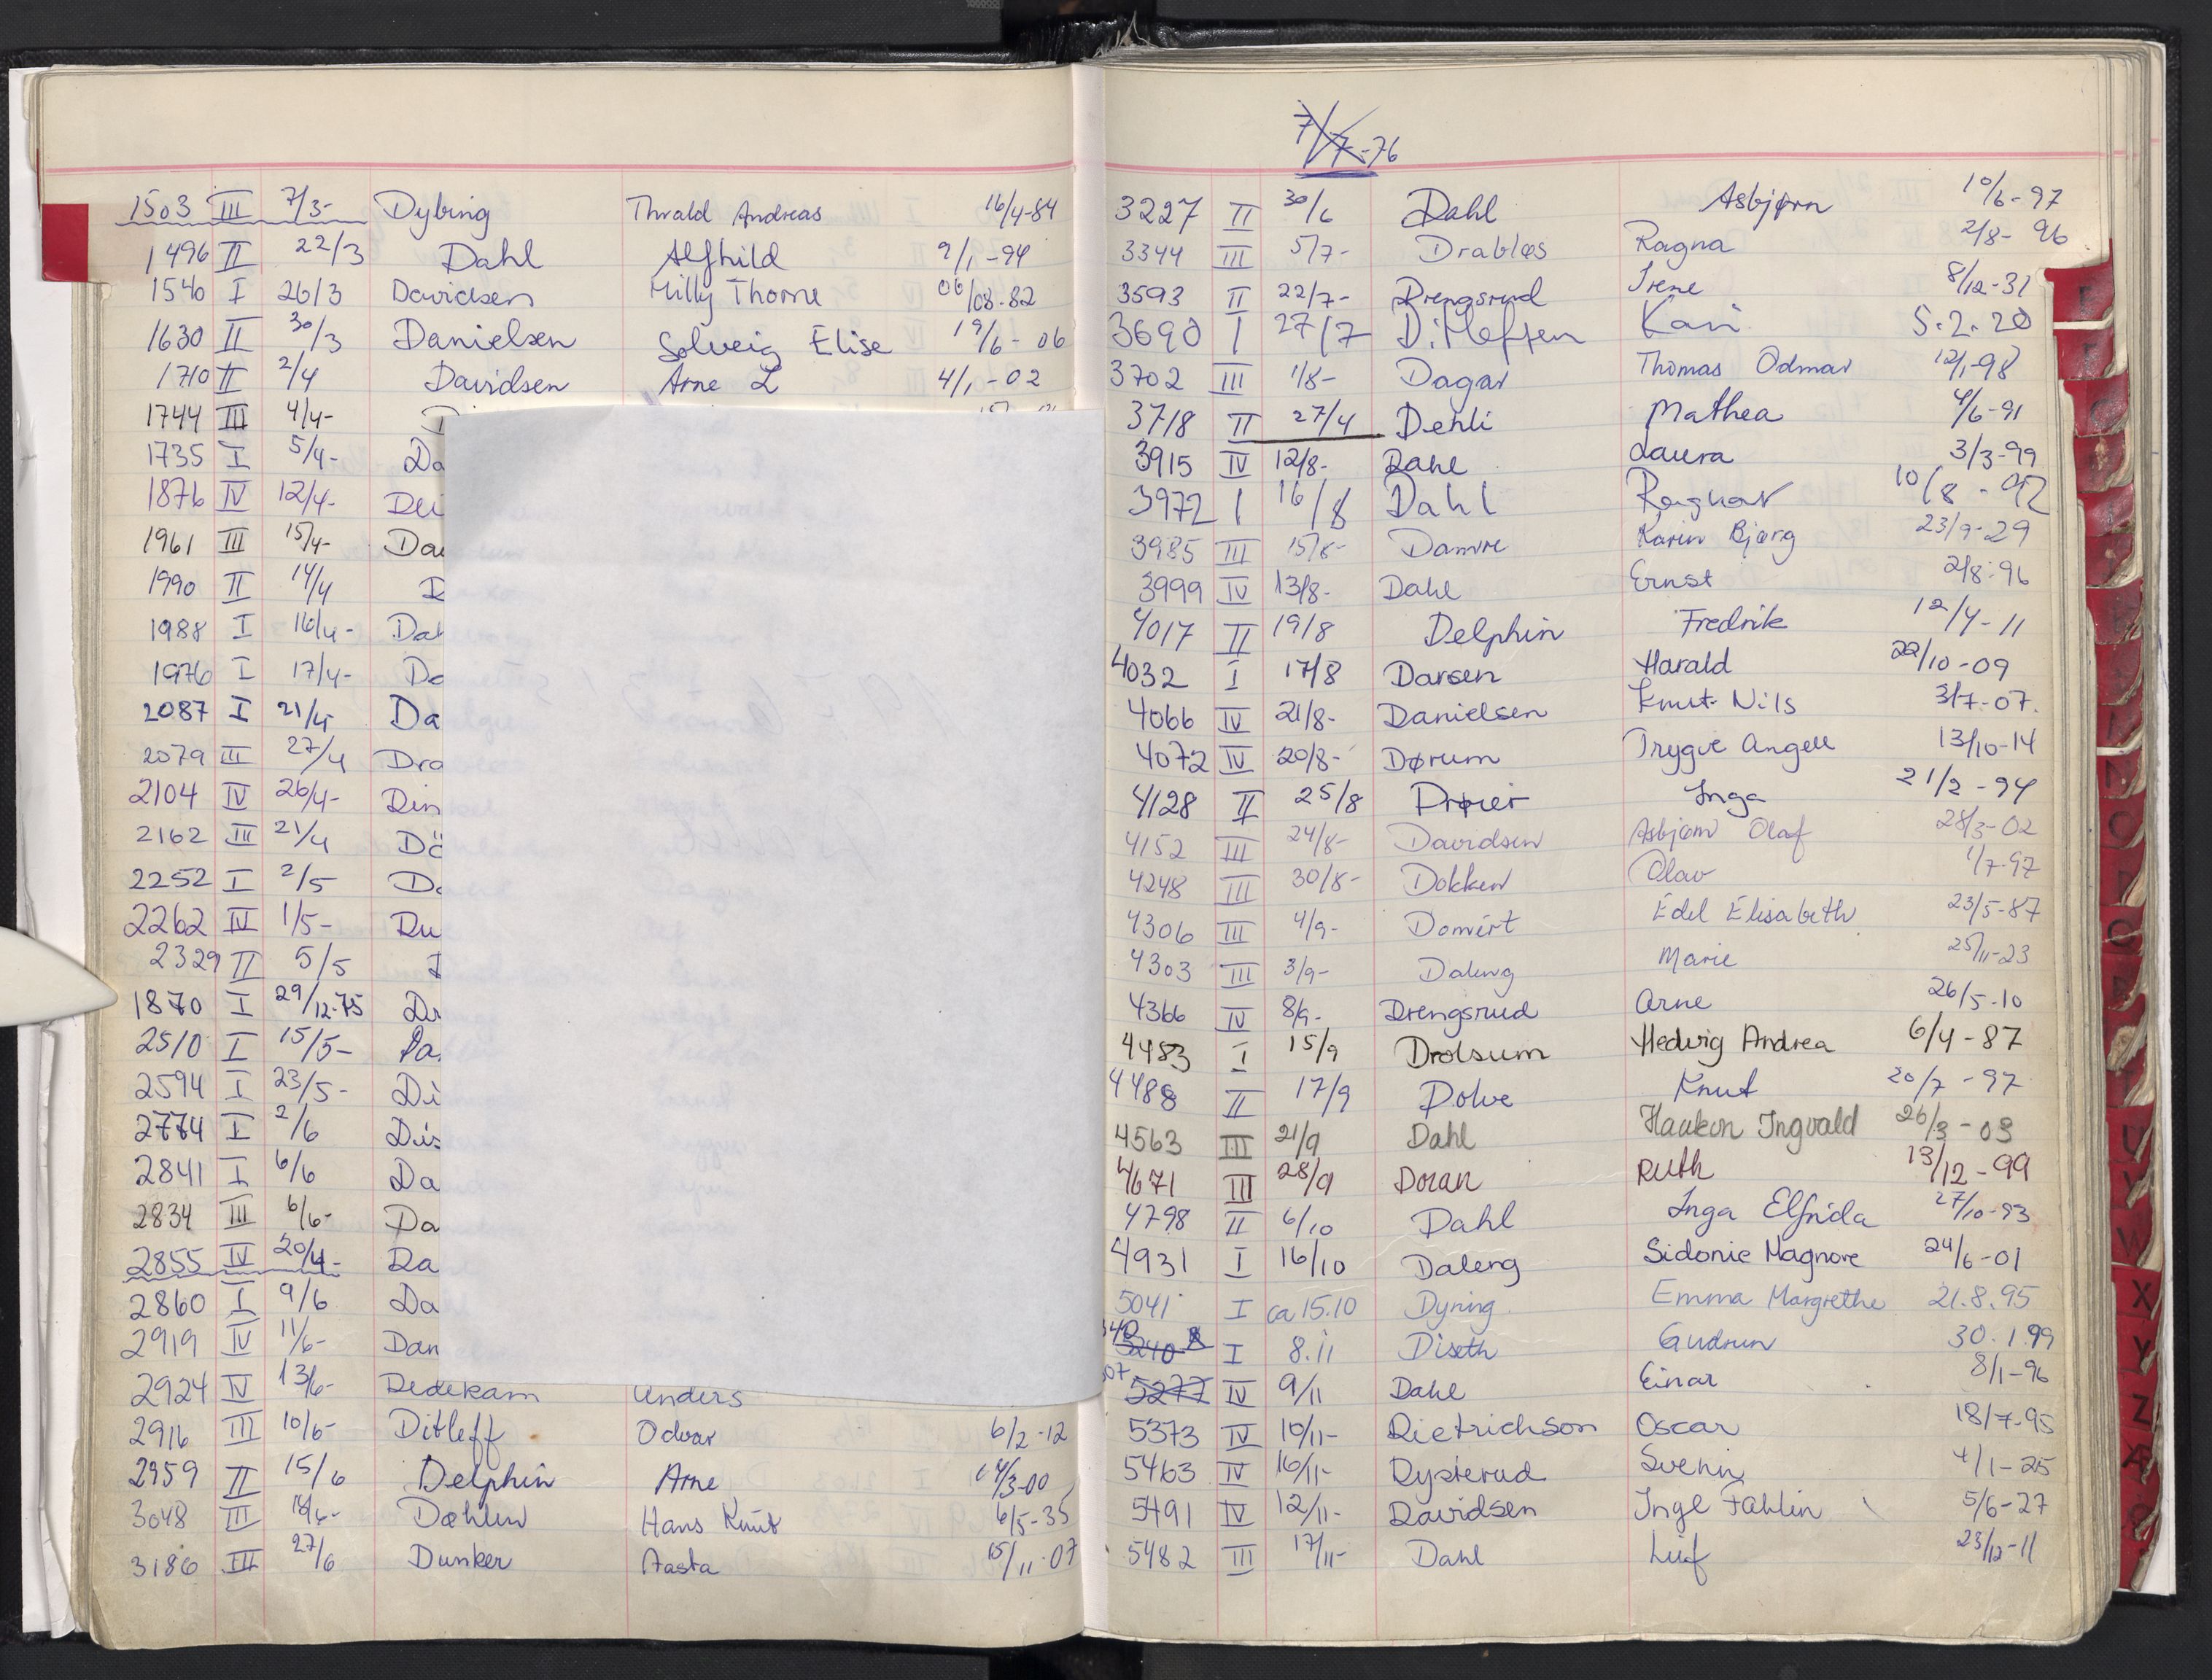 1503 III 7/3- Dybing Thvald Andreas 16/4-84
1496 II 22/3 Dahl Alfhild 9/1-94
1540 I 26/3 Davidsen Milly Thorne 06/08-82
1630 II 30/3 Danielsen Solveig Elise 19/6-06
1710 II 2/4 Davidsen Arne L 4/1-02
1744 III 4/4-
1735 I 5/4- Da
1876 IV 12/4- Dei
1961 III 15/4- Da
1990 II 14/4
1988 I 16/4- Dah
1976 I 17/4- Da
2087 I 21/4 Da
2079 III 27/4 Dra
2104 IV 26/4- Din
2162 III 21/4 Dö
2252 I 2/5 Da
2262 IV 1/5- Du
2329 II 5/5
1870 I 29/12-75
2510 I 15/5- Da
2594 I 23/5- Di
2774 I 2/6
2841 I 6/6 Da
2834 III 6/6- Da
2855 IV 20/4- Da
2860 I 9/6 Da
2919 IV 11/6- Dan
2924 IV 13/6- Dedekam Anders
2916 III 10/6- Ditleff Odvar 6/2-12
2959 II 15/6 Delphin Arne 14/3-00
3048 III Dæhlen Hans Knut 6/5-35
3186 III 27/6 Dunker Aasta 15/11-07
7/7-76
3227 II 30/6 Dahl Asbjørn 10/6-97
3344 III 5/7- Drabløs Ragna 2/8-96
3593 II 22/7- Drengsrud Irene 8/12-31
3690 I 27/7 Ditlefsen Kari 5.2.20
3702 III 1/8- Dagar Thomas Odmar 12/1-98
3718 II 27/4 Dehli Mathea 4/6-91
3915 IV 12/8- Dahl Laura 3/3-99
3972 I 16/8 Dahl Ragnar 10/8-92
3985 III 15/8- Damre Karin Bjørg 23/9-29
3999 IV 13/8- Dahl Ernst 2/8-96
4017 II 19/8 Delphin Fredrik 12/4-11
4032 I 17/8 Darsen Harald 22/10-09
4066 IV 21/8- Danielsen Knut Nils 3/7-07.
4072 IV 20/8- Dørum Trygve Angell 13/10-14
4128 II 25/8 Drøier Inga 21/2-94
4152 III 24/8- Davidsen Asbjørn Olaf 28/3-02
4248 III 30/8- Dokken Olav 1/7-97
4306 III 4/9- Edel Elisabeth 23/5-87
4303 III 3/9- Daleng Marie 25/11-23
4366 IV 8/9- Drengsrud Arne 26/5-10
4483 I 15/9 Drolsum Hedvig Andrea 6/4-87
4488 II 17/9 Dolve Knut 20/7-97
4563 III 21/9 Dahl Haakon Ingvald 26/3-03
4671 III 28/9 Doran Ruth 13/12-99
4798 II 6/10 Dahl Inga Elfrida 27/10-93
4931 I 16/10 Daleng Sidonie Magnore 24/6-01
5041 I ca 15.10 Dyning Emma Margrethe 21.8.95
5240 I 8.11 Diseth Gudrun 30.1.99
5277 IV 9/11 Dahl Einar 8/1-96
5373 IV 10/11- Dietrichson Oscar 18/7-95
5463 IV 16/11- Dysterud Svein 4/1-25
5491 IV 12/11- Davidsen Inge Fahlin 5/6-27
5482 III 17/11- Dahl Leif 23/12-11
O
Q
U
V
W
X
Y
Z